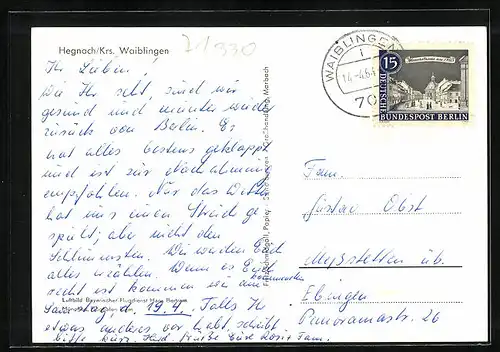 Hegnach/Krs. Waiblingen
21330
Ihr Lieben!
Wie Ihr seht, sind wir
gesund und munter wieder
zurück von Berlin. Es
hat alles bestens geklappt
und ist zur Nachahmung
empfohlen. Nur das Wetter
hat uns einen Streich ge-
spielt; aber nicht den
Schlimmsten. Wir werden Euch
alles erzählen. Wenn es Euch
recht ist kommen wir am kommenden
Samstag, d. 19.4. Falls Ihr
etwas anderes vor habt, schreibt
bitte kurz. Grüße Eure
Luftbild Bayerischer Flugdienst Hans Bertram
Marbach
WAIBLINGEN
1
70
15
DEUTSCHE
BUNDESPOST BERLIN
Fam.
Gustav Obst
Meßstetten üb.
Ebingen
Panoramastr. 26